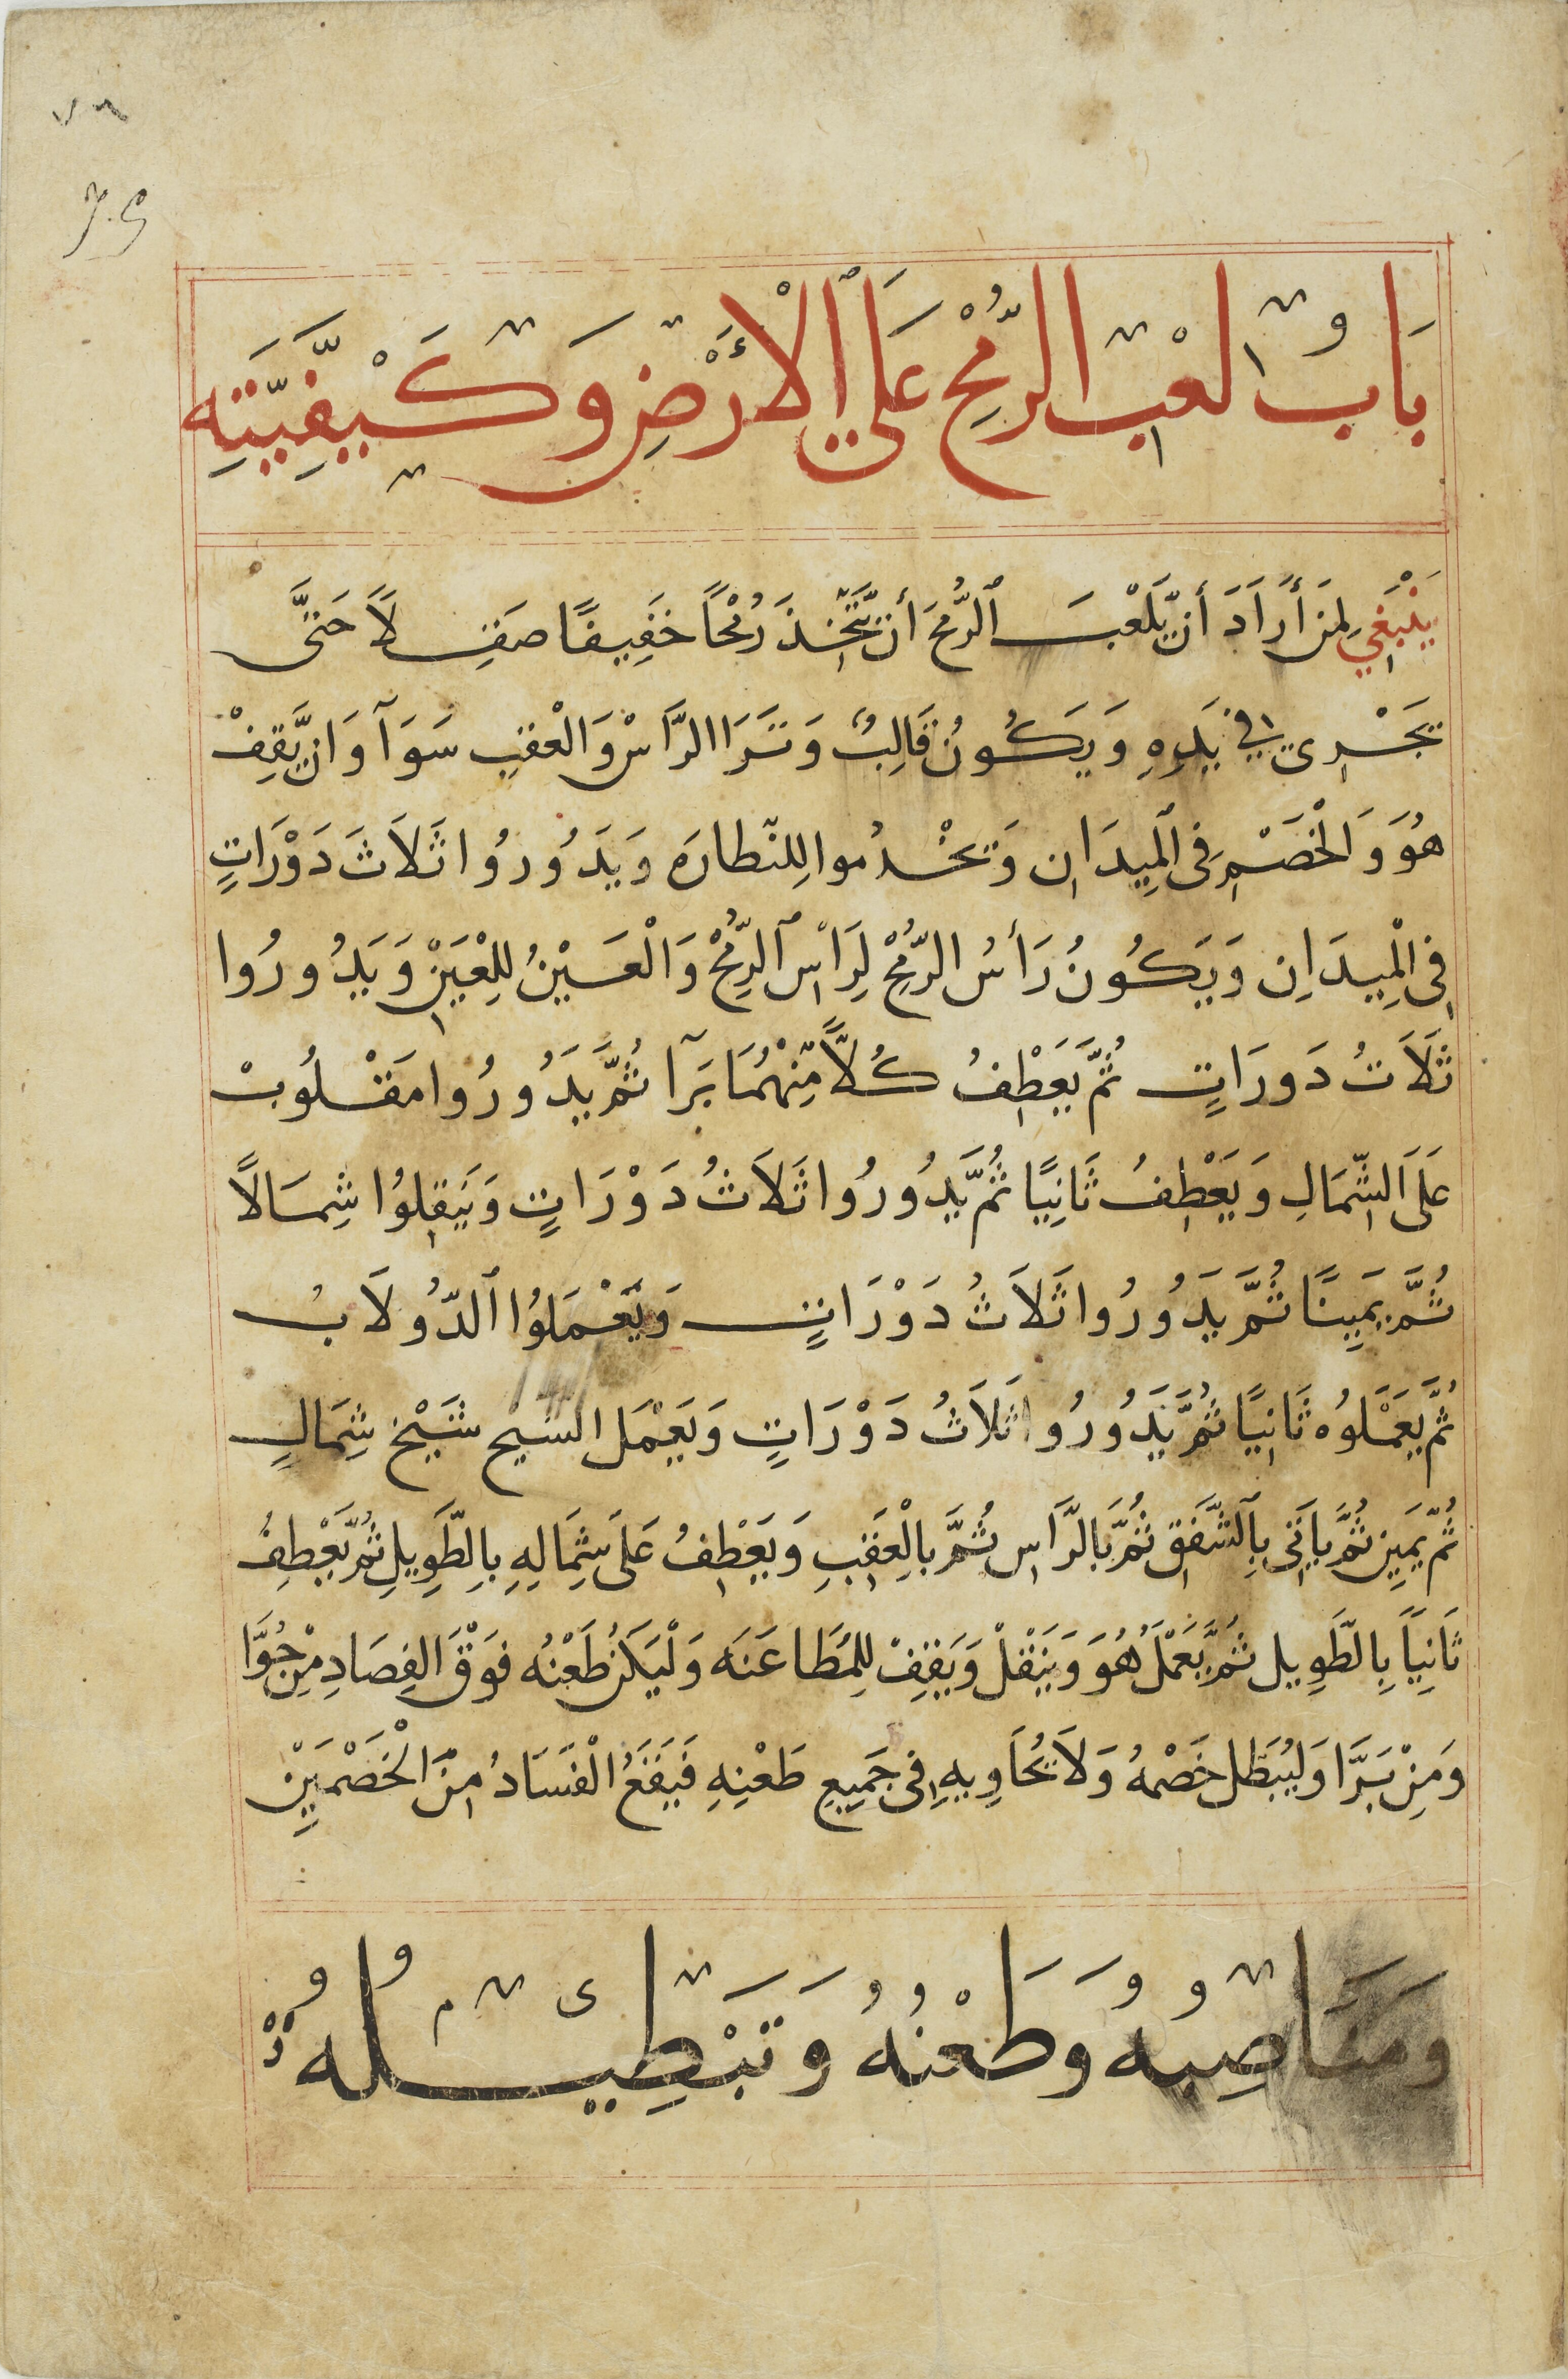 ٧٦
بَابُ لَعْبِ الرُّمْحِ عَلَى الْأَرْضِ وَكَيْفِيَّتِهِ
يَنْبَغِي لِمَنْ أَرَادَ أَنْ يَلْعَبَ ٱلرُّمْحَ أَنْ يَتَّخِذَ رُمْحًا خَفِيفًا صَقِلاً حَتَّى
تَجْرِى فِي يَدِهِ وَيَكُونُ قَالِبٌ وَتَرَا الرَّاسْ وَالْعقبِ سَوَآ وَان يَّقِفْ
هُوَ وَالْخَصْمِ فِى الْمِيدَانِ وَتخْدُموا لِلنّطارَه وَيَدُورُوا ثَلَاثَ دَوْرَاتٍ
فِى الْمِيدَانِ وَيَكُونُ رَأسُ الرُّمْحِ لِرَاْسِ ٱلرُّمْحْ وَالْعَيْنُ لِلْعَيْنْ وَيَدُورُوا
ثَلَاثُ دَورَاتٍ ثُمَّ يَعَطِفُ كُلاًّ مِّنْهُمَا بَرَّآ ثُمَّ يَدُورُوا مَقْلُوبْ
عَلَى الشِّمَالِ وَيَعْطِفُ ثَانِيًا ثُمَّ يَدُورُوا ثَلَاثُ دَوْرَاتٍ وَيَقِلوُا شِمَالاً
ثُمَّ يَمِينًا ثُمَّ يَدُورُوا ثَلَاثُ دَوْرَاتٍ وَيَعْمَلوُا ٱلدُّولَابُ
ثُمَّ يَعَمْلوُه ثَانِيًا ثُمَّ يَدُورُوا ثَلَاثُ دَوْرَاتٍ وَيَعْمَل السيح شَيْخ شِمَالٍ
ثُمَّ يَمِين ثُمَّ يَاتى بِٱلشَّفَقِ ثُمَّ بَالرَّاسِ ثُمَّ بِالْعَقِبِ وَيَعْطِفُ عَلَى شِمَالِهِ بِالطَّوِيلِ ثُمَّ يَعْطِفُ
ثَانِيًا بِالطَّوِيل ثُمَّ يَعْمَلُ هُوَ وَيَنْقلْ وَيَقِفْ لِلمُطَاعَنَه وَلْيَكُنْ طَعْنُه فَوْقَ الفِصَادِ مِنْ جُوَّا
وَمِنْ بَرَّا وَلْيُبَطّل خَصْمُهُ وَلَا يُحَاوِيهِ فِى جَمِيعِ طَعْنِهِ فَيَقَعُ الْفَسَادُ مِنَ الْخَصْمَيْنِ
وَمَنَاصِبه وَطَعْنُهُ وَتَبْطِيلُه